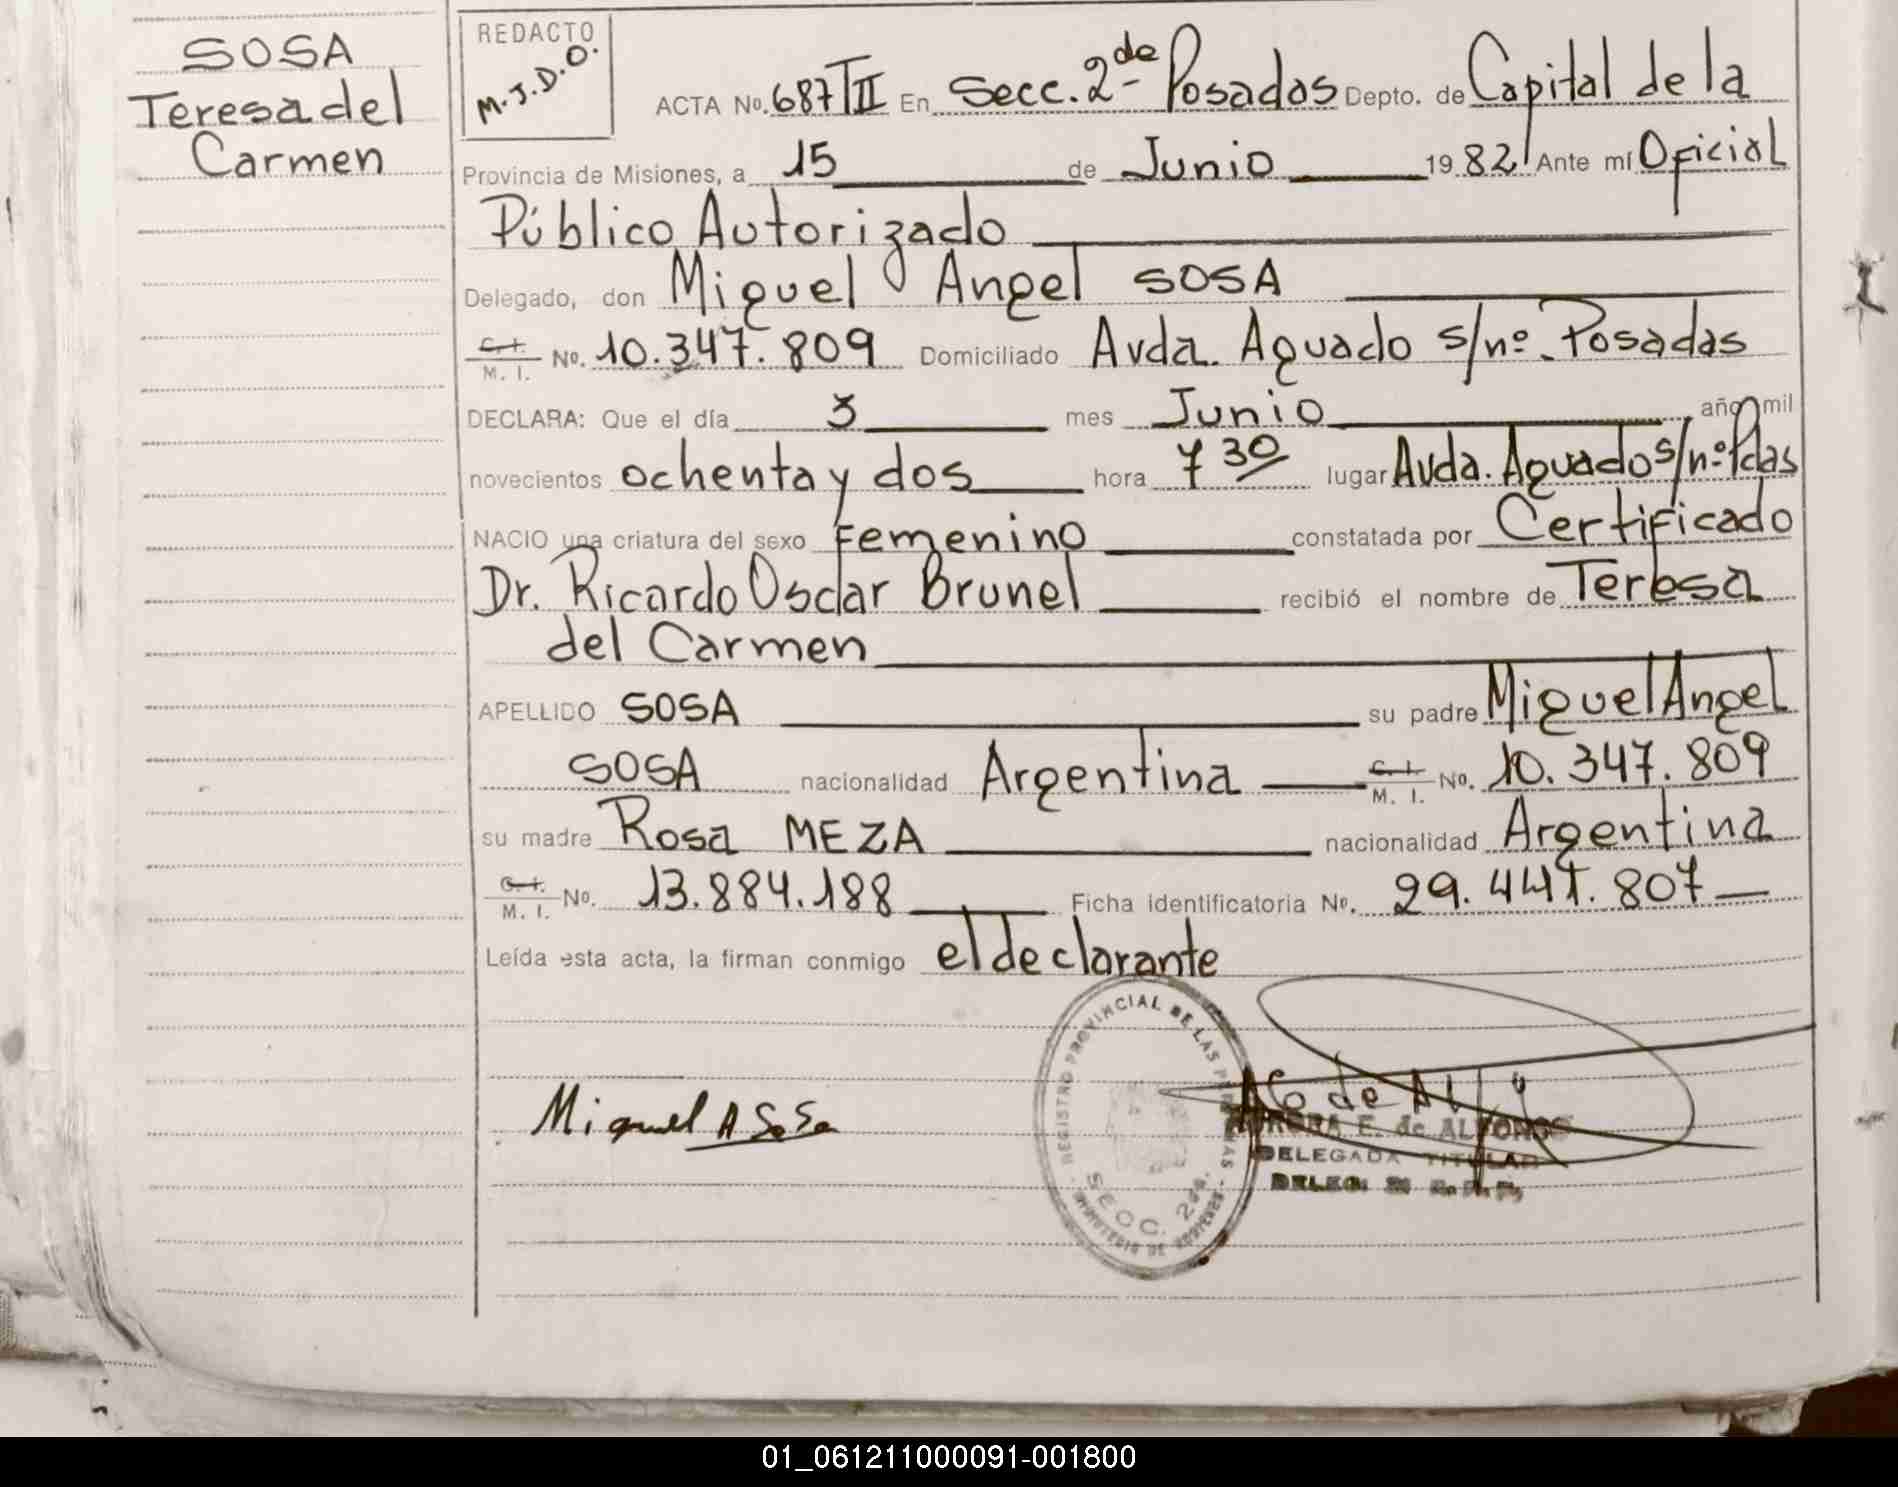 SOSA
Teresa del
Carmen
REDACTO
M.J.D.O.
ACTA No. 687 TII En Secc. 2da Posadas Depto. de Capital de la
Provincia de Misiones, a 15 de Junio 1982 Ante mí Oficial
Público Autorizado
Delegado, don Miguel Angel SOSA
C.I. M. I. No. 10.347.809 Domiciliado Avda. Aguado s/nº. Posadas
DECLARA: Que el día 3 mes Junio año mil
novecientos ochenta y dos hora 7 30 lugar Avda. Aguado s/nº Pdas
NACIO una criatura del sexo Femenino constatada por Certificado
Dr. Ricardo Oscar Brunel recibió el nombre de Teresa
del Carmen
APELLIDO SOSA su padre Miguel Angel
SOSA nacionalidad Argentina C.I. M. I. No. 10.347.809
su madre Rosa MEZA nacionalidad Argentina
C.I. M. I. No. 13.884.188 Ficha identificatoria No. 29.447.807
Leída esta acta, la firman conmigo el declarante
REGISTRO PROVINCIAL DE LAS PERSONAS
SECC. 2da.
MINISTERIO DE
Miguel A Sosa
E. de ALFONSO
DELEGADA TITULAR
DELEG.
01_061211000091-001800